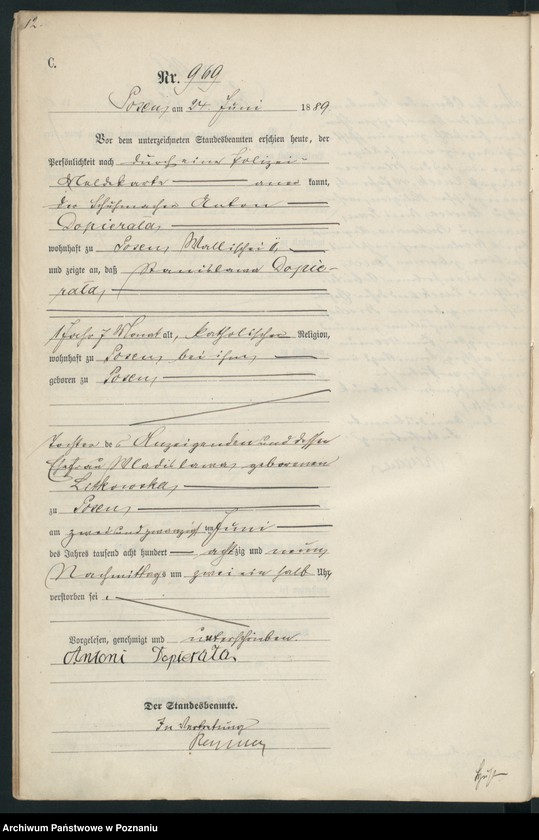 12.
C.
Nr. 969
Posen, am 24 Juni 1889
Vor dem unterzeichneten Standesbeamten erschien heute, der
Persönlichkeit nach durch eine Polizei-
Meldekarte anerkannt,
der Schuhmacher Anton
Dopierała,
wohnhaft zu Posen, Wallischei
und zeigte an, daß Stanislawa Dopie-
rała,
1 Jahr 7 Monat alt, katholischer Religion,
wohnhaft zu Posen, bei ihm,
geboren zu Posen,
Tochter des Anzeigenden und dessen
Ehefrau Wladislawa, geborenen
zu Posen,
am zwei und zwanzigsten Juni
des Jahres tausend acht hundert achtzig und neun,
Nachmittags um zwei ein halb Uhr,
verstorben sei.
Vorgelesen, genehmigt und unterschrieben.
Antoni Dopierała,
Der Standesbeamte.
In Vertretung